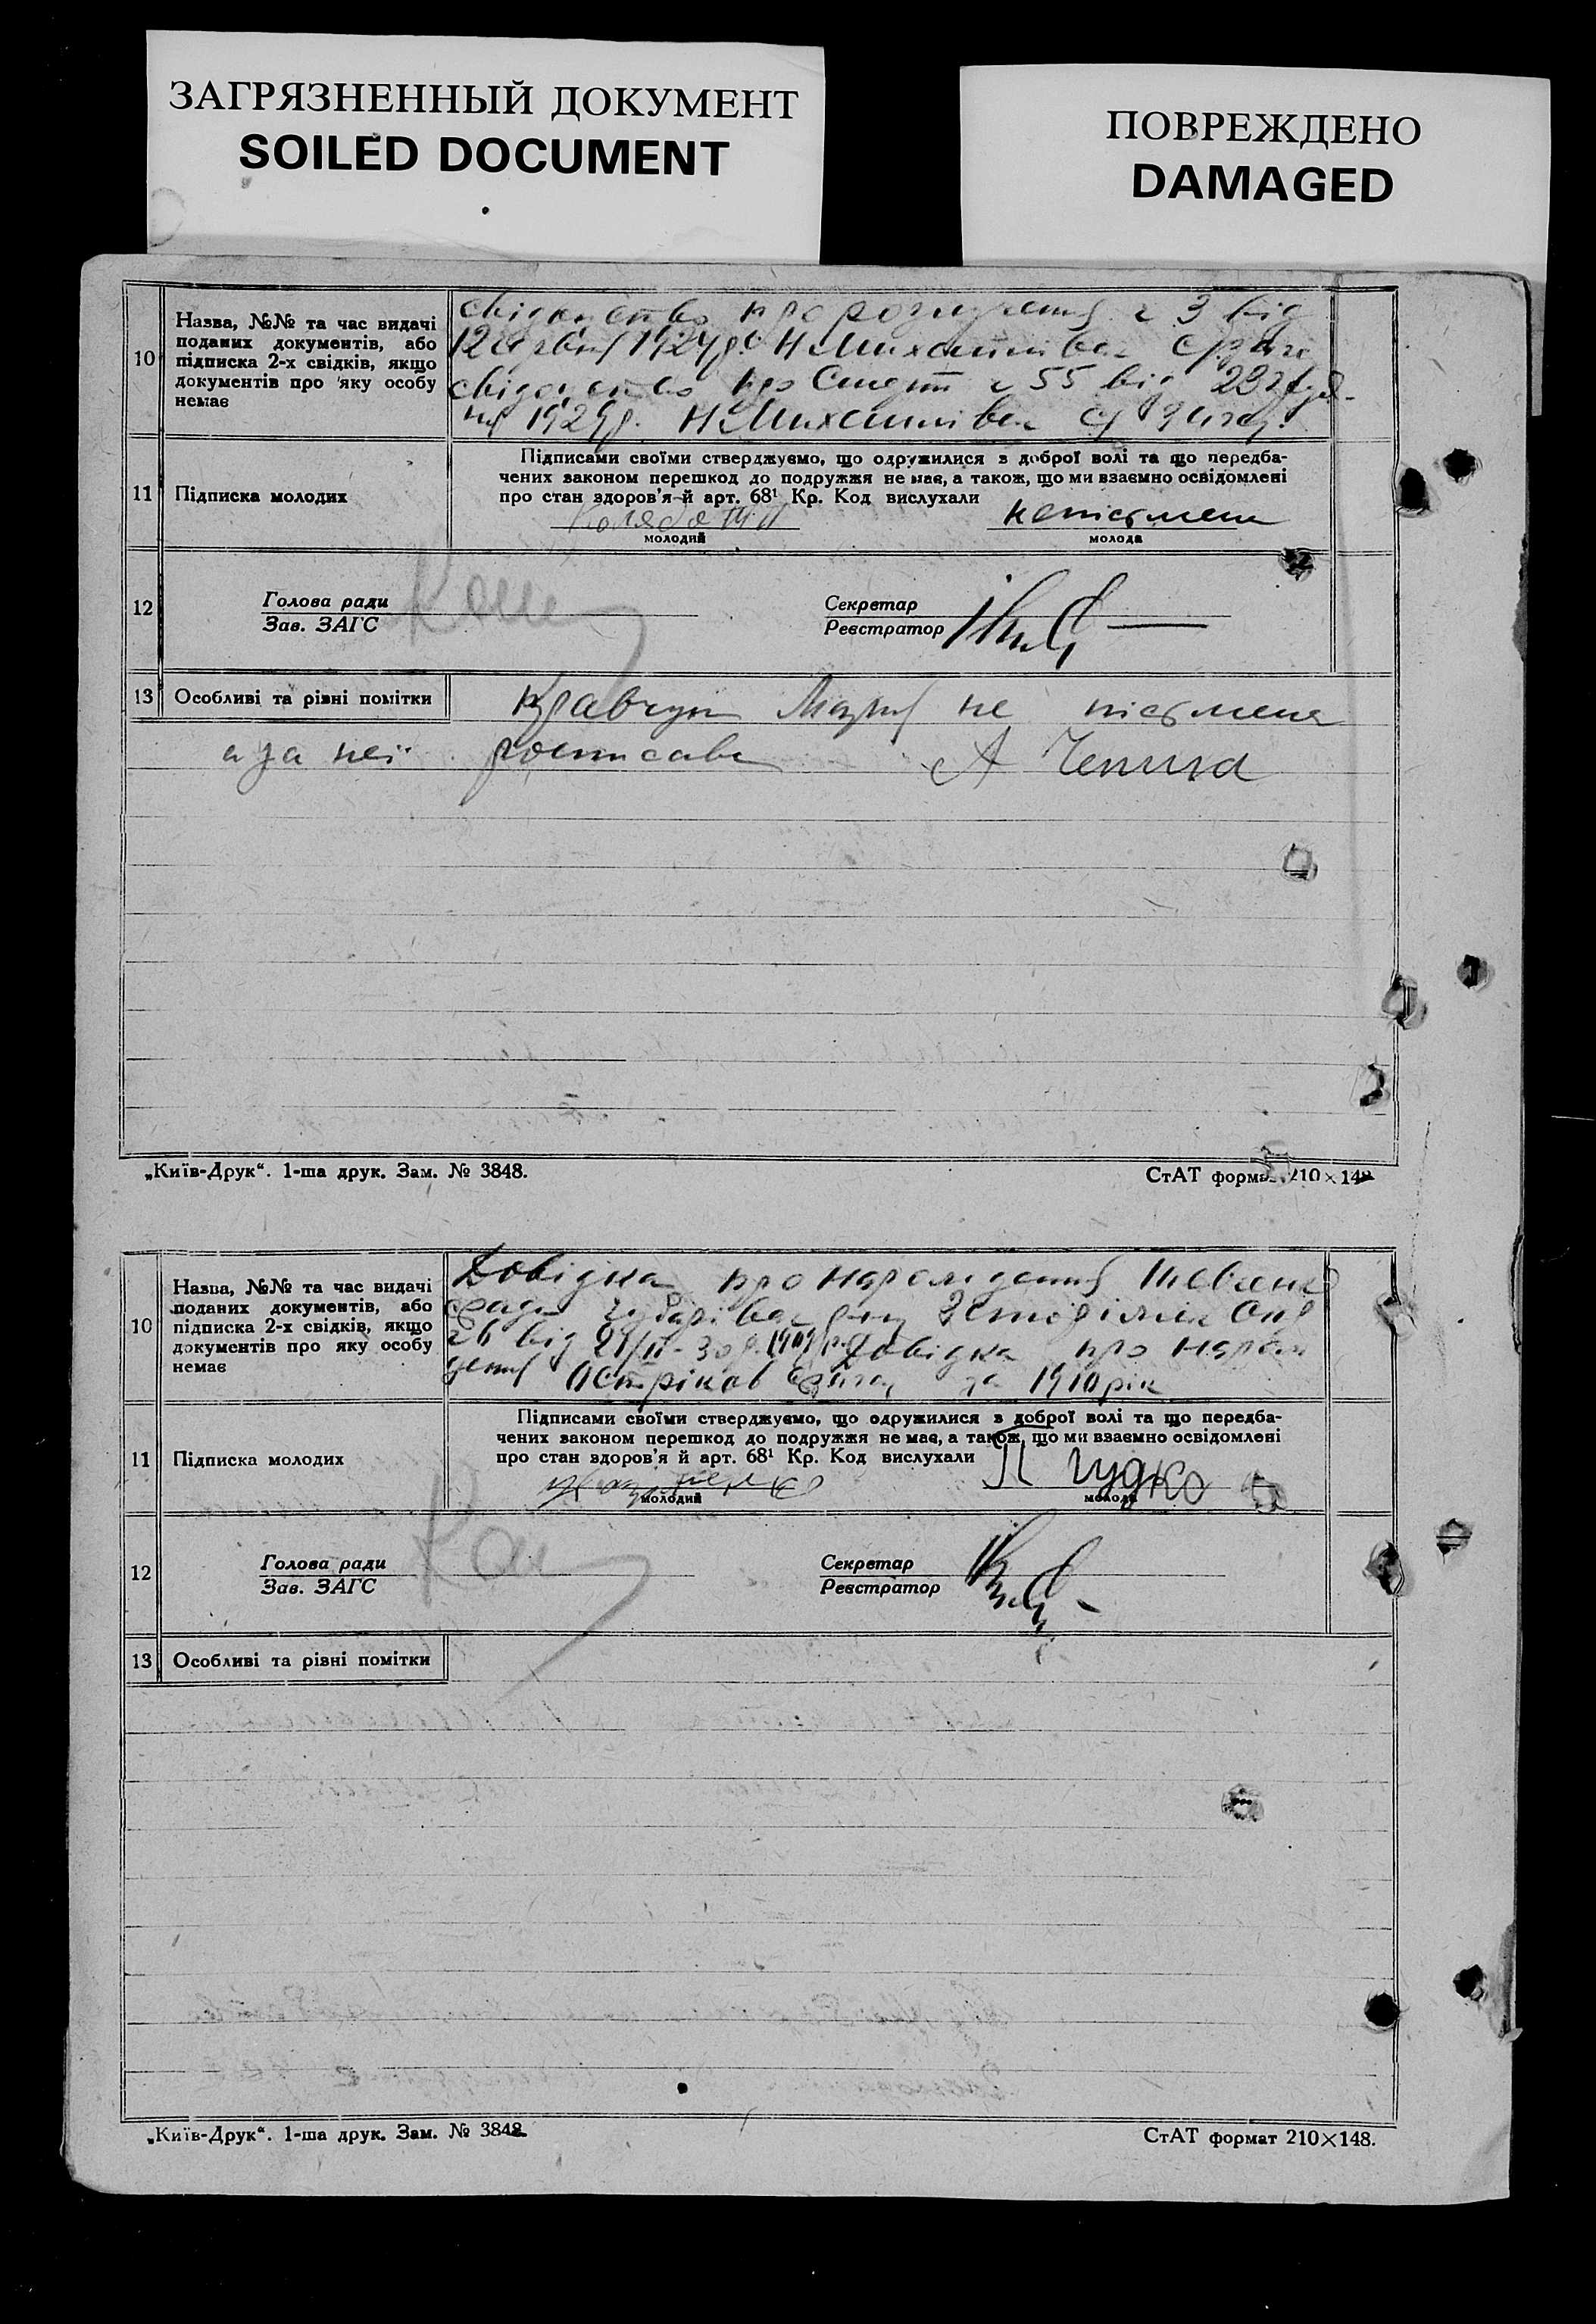 ЗАГРЯЗНЕННЫЙ ДОКУМЕНТ
SOILED DOCUMENT
ПОВРЕЖДЕНО
DAMAGED
10
Назва, №№ та час видачі
поданих документів, або
підписка 2-х свідків, якщо
документів про яку особу
немає
3 від
1924р. Н Михайлівка
про 55 від 23
1929р. Н Михайлівка
11
Підписка молодих
Підписами своїми стверджуємо, що одружилися з доброї волі та що передба-
чених законом перешкод до подружжя не має, а також, що ми взаємно освідомлені
про стан здоров'я й арт. 68¹ Кр. Код вислухали
неписьмена
молодий
молода
12
Голова ради
Зав. ЗАГС
Секретар
Реєстратор
13
Особливі та рівні помітки
Кравчук не письмена
а за неї росписався А Чепига
„Київ-Друк“. 1-ша друк. Зам. № 3848.
СтАТ формат 210×148
10
Назва, №№ та час видачі
поданих документів, або
підписка 2-х свідків, якщо
документів про яку особу
немає
Довідка про народження
від Довідка про народ
за 1910 рік
11
Підписка молодих
Підписами своїми стверджуємо, що одружилися з доброї волі та що передба-
чених законом перешкод до подружжя не має, а також, що ми взаємно освідомлені
про стан здоров'я й арт. 68¹ Кр. Код вислухали
Гудко
молодий
молода
12
Голова ради
Зав. ЗАГС
Секретар
Реєстратор
13
Особливі та рівні помітки
„Київ-Друк“. 1-ша друк. Зам. № 3848.
СтАТ формат 210×148.